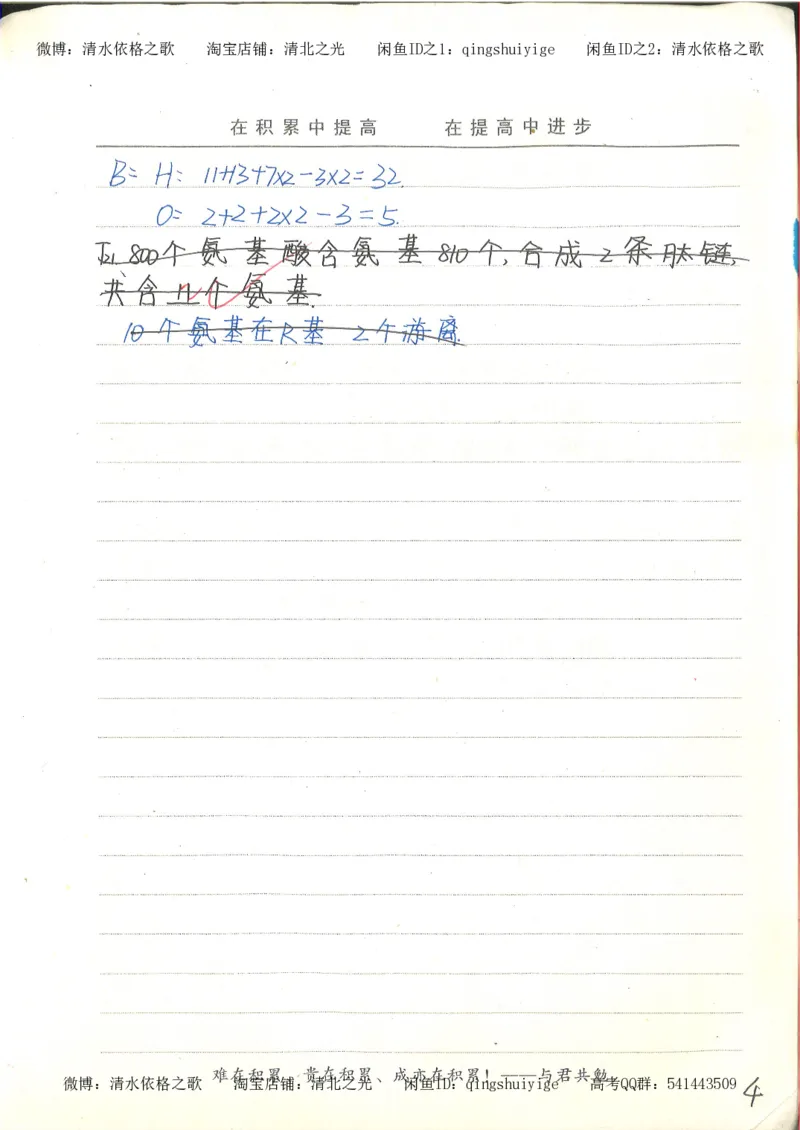 微博：清水依格之歌 淘宝店铺：清北之光 闲鱼ID之1：qingshuiyige 闲鱼ID之2：清水依格之歌
在积累中提高 在提高中进步
B= H: 11+13+7×2-3×2=32.
O= 2+2+2×2-3=5.
800个氨基酸含氨基810个,合成2条肽链,
共含12个氨基.
10个氨基在R基 2个游离
难在积累、贵在积累、成亦在积累！——与君共勉
微博：清水依格之歌 淘宝店铺：清北之光 闲鱼ID：qingshuiyige 高考QQ群：541443509
4